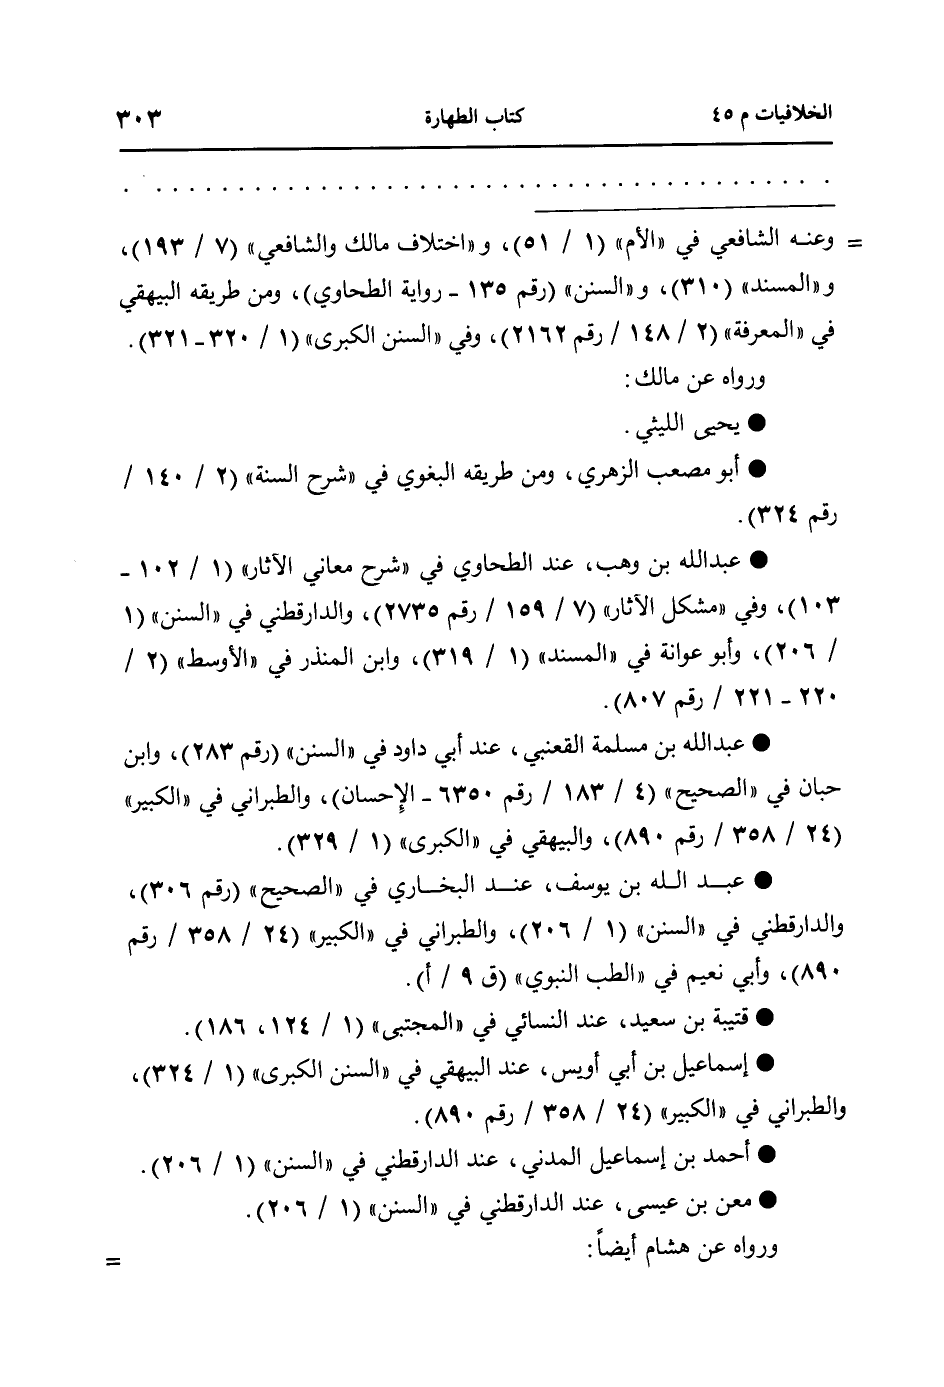 الخلافيات م ٤٥ كتاب الطهارة ٣٠٣
. . . . . . . . . . . . . . . . . . . . . . . . . . . . . . . . . . . . . . . . . .
= وعنه الشافعي في «الأم» (١ / ٥١)، و«اختلاف مالك والشافعي» (٧ / ١٩٣)،
و«المسند» (٣١٠)، و«السنن» (رقم ١٣٥ - رواية الطحاوي)، ومن طريقه البيهقي
في «المعرفة» (٢ / ١٤٨ / رقم ٢١٦٢)، وفي «السنن الكبرى» (١ / ٣٢٠ـ ٣٢١).
ورواه عن مالك:
● يحيى الليثي .
● أبو مصعب الزهري، ومن طريقه البغوي في «شرح السنة» (٢ / ١٤٠ /
رقم ٣٢٤).
● عبدالله بن وهب، عند الطحاوي في «شرح معاني الآثار» (١ / ١٠٢ -
١٠٣)، وفي «مشكل الآثار» (٧ / ١٥٩ / رقم ٢٧٣٥)، والدارقطني في «السنن» (١
/ ٢٠٦)، وأبو عوانة في «المسند» (١ / ٣١٩)، وابن المنذر في «الأوسط» (٢ /
٢٢٠ - ٢٢١ / رقم ٨٠٧).
● عبدالله بن مسلمة القعنبي، عند أبي داود في «السنن» (رقم ٢٨٣)، وابن
حبان في «الصحيح» (٤ / ١٨٣ / رقم ٦٣٥٠ - الإحسان)، والطبراني في «الكبير»
(٢٤ / ٣٥٨ / رقم ٨٩٠)، والبيهقي في «الكبرى» (١ / ٣٢٩).
● عبد الله بن يوسف، عند البخاري في «الصحيح» (رقم ٣٠٦)،
والدارقطني في «السنن» (١ / ٢٠٦)، والطبراني في «الكبير» (٢٤ / ٣٥٨ / رقم
٨٩٠)، وأبي نعيم في «الطب النبوي» (ق ٩ / أ).
● قتيبة بن سعيد، عند النسائي في «المجتبى» (١ / ١٢٤، ١٨٦).
● إسماعيل بن أبي أويس، عند البيهقي في «السنن الكبرى» (١ / ٣٢٤)،
والطبراني في «الكبير» (٢٤ / ٣٥٨ / رقم ٨٩٠).
● أحمد بن إسماعيل المدني، عند الدارقطني في «السنن» (١ / ٢٠٦).
● معن بن عيسى، عند الدارقطني في «السنن» (١ / ٢٠٦).
ورواه عن هشام أيضاً:
=